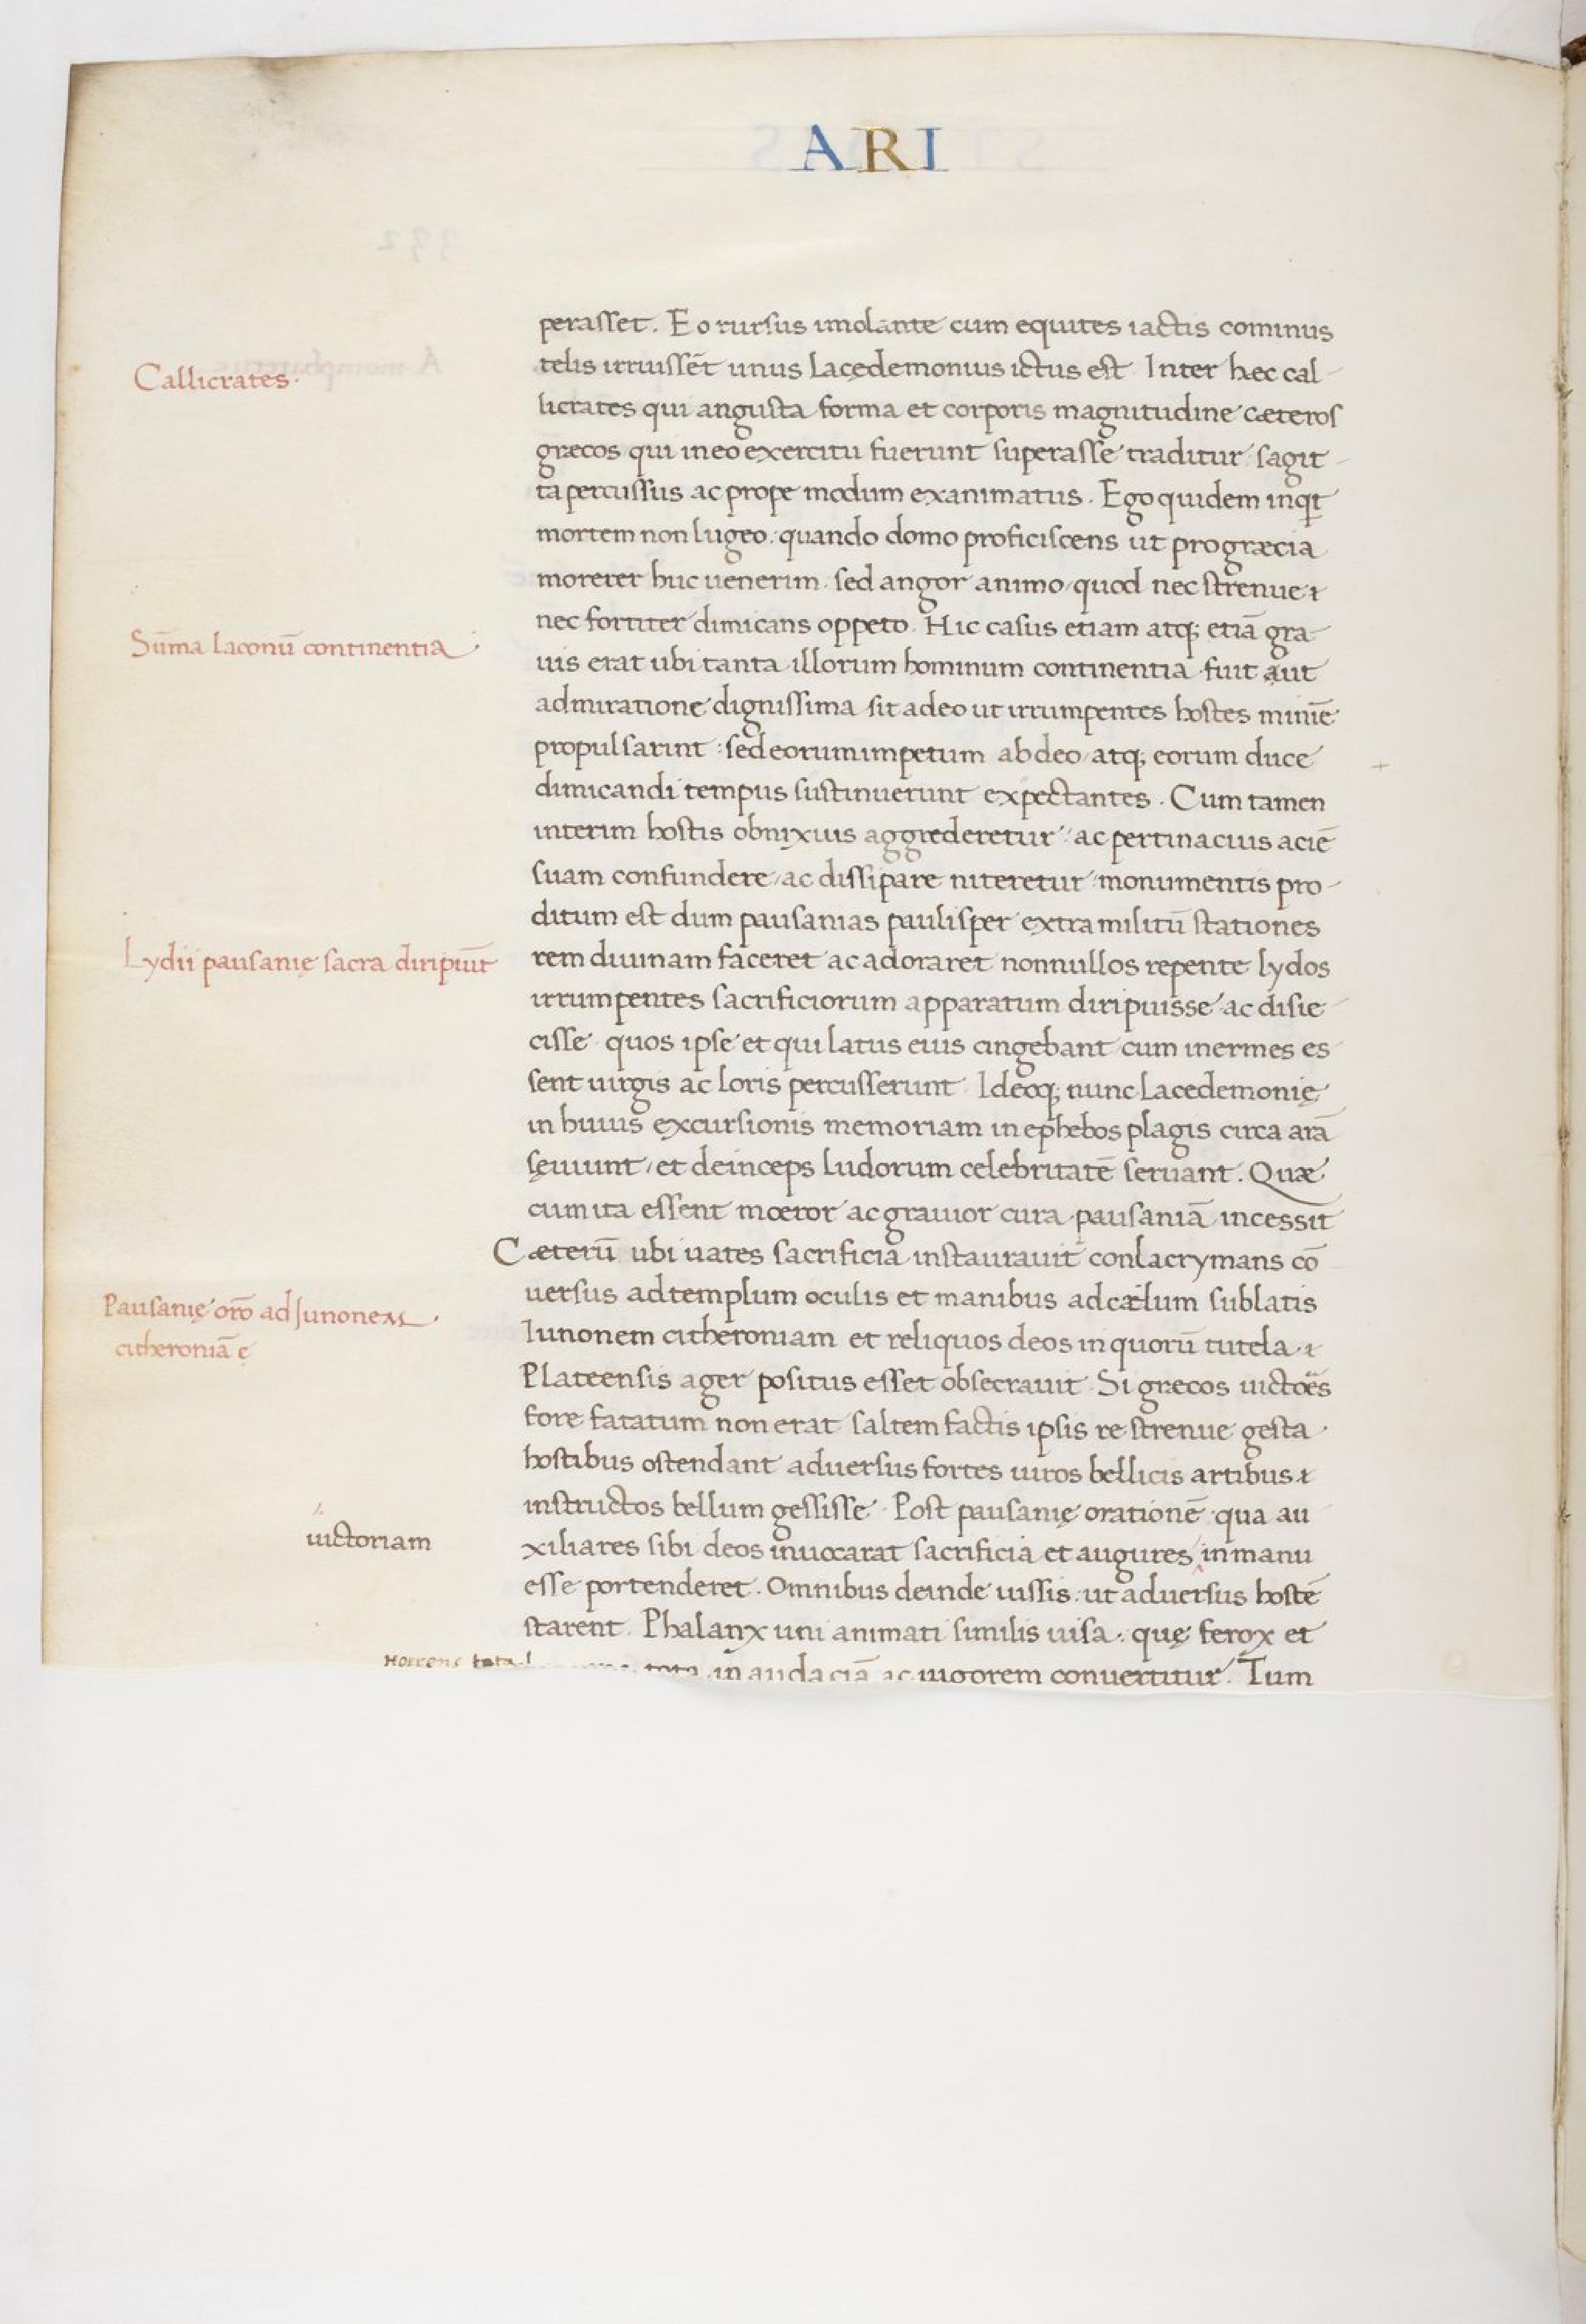 ARI
perasset. Eo rursus imolante cum equites iactis cominus
Callicrates.
telis irruissēt unus Lacędemonius ictus est. Inter hæc cal-
licrates qui angusta forma et corporis magnitudine cæteros
græcos qui in eo exercitu fuerunt superasse traditur: sagit-
ta percussus ac prope modum exanimatus. Ego quidem inqt
mortem non lugeo: quando domo proficiscens ut pro græcia
morerer huc uenerim. sed angor animo quod nec strenue
nec fortiter dimicans oppeto. Hic casus etiam atq; etiā gra-
Sūma laconū continentia
uis erat ubi tanta illorum hominum continentia fuit aut
admiratione dignissima sit adeo ut irrumpentes hostes minīe
propulsarint: sed eorum impetum ab deo atq; eorum duce
dimicandi tempus sustinuerunt expectantes. Cum tamen
interim hostis obnixius aggrederetur: ac pertinacius aciē
suam confundere, ac dissipare niteretur: monumentis pro-
ditum est dum pausanias paulisper extra militū stationes
Lydii pausanię sacra diripiūt
rem diuinam faceret ac adoraret nonnullos repente lydos
irrumpentes sacrificiorum apparatum diripuisse ac disie-
cisse. quos ipse et qui latus eius cingebant cum inermes es
sent uirgis ac loris percusserunt. Ideoq; nunc Lacedemonię
in huius excursionis memoriam in ephebos plagis circa arā
sęuiunt, et deinceps ludorum celebritatē seruant. Quæ
cum ita essent mœror ac grauior cura pausaniā incessit
Cæterū ubi uates sacrificia instaurauit conlacrymans cō
uersus ad templum oculis et manibus ad cælum sublatis
Pausanię orō ad Junonem
citheroniā ę
Iunonem citheroniam et reliquos deos in quorū tutela
Plateensis ager positus esset obsecrauit. Si græcos uictoēs
fore fatatum non erat saltem factis ipsis re strenue gesta
hostibus ostendant aduersus fortes uiros bellicis artibus
instructos bellum gessisse. Post pausanię orationē qua au
uictoriam
xiliares sibi deos inuocarat sacrificia et augures in manu
esse portenderet. Omnibus deinde iussis ut aduersus hostē
starent. Phalanx uni animati similis uisa: quę ferox et
Horrens tota
tota in audaciā ac uigorem conuertitur. Tum